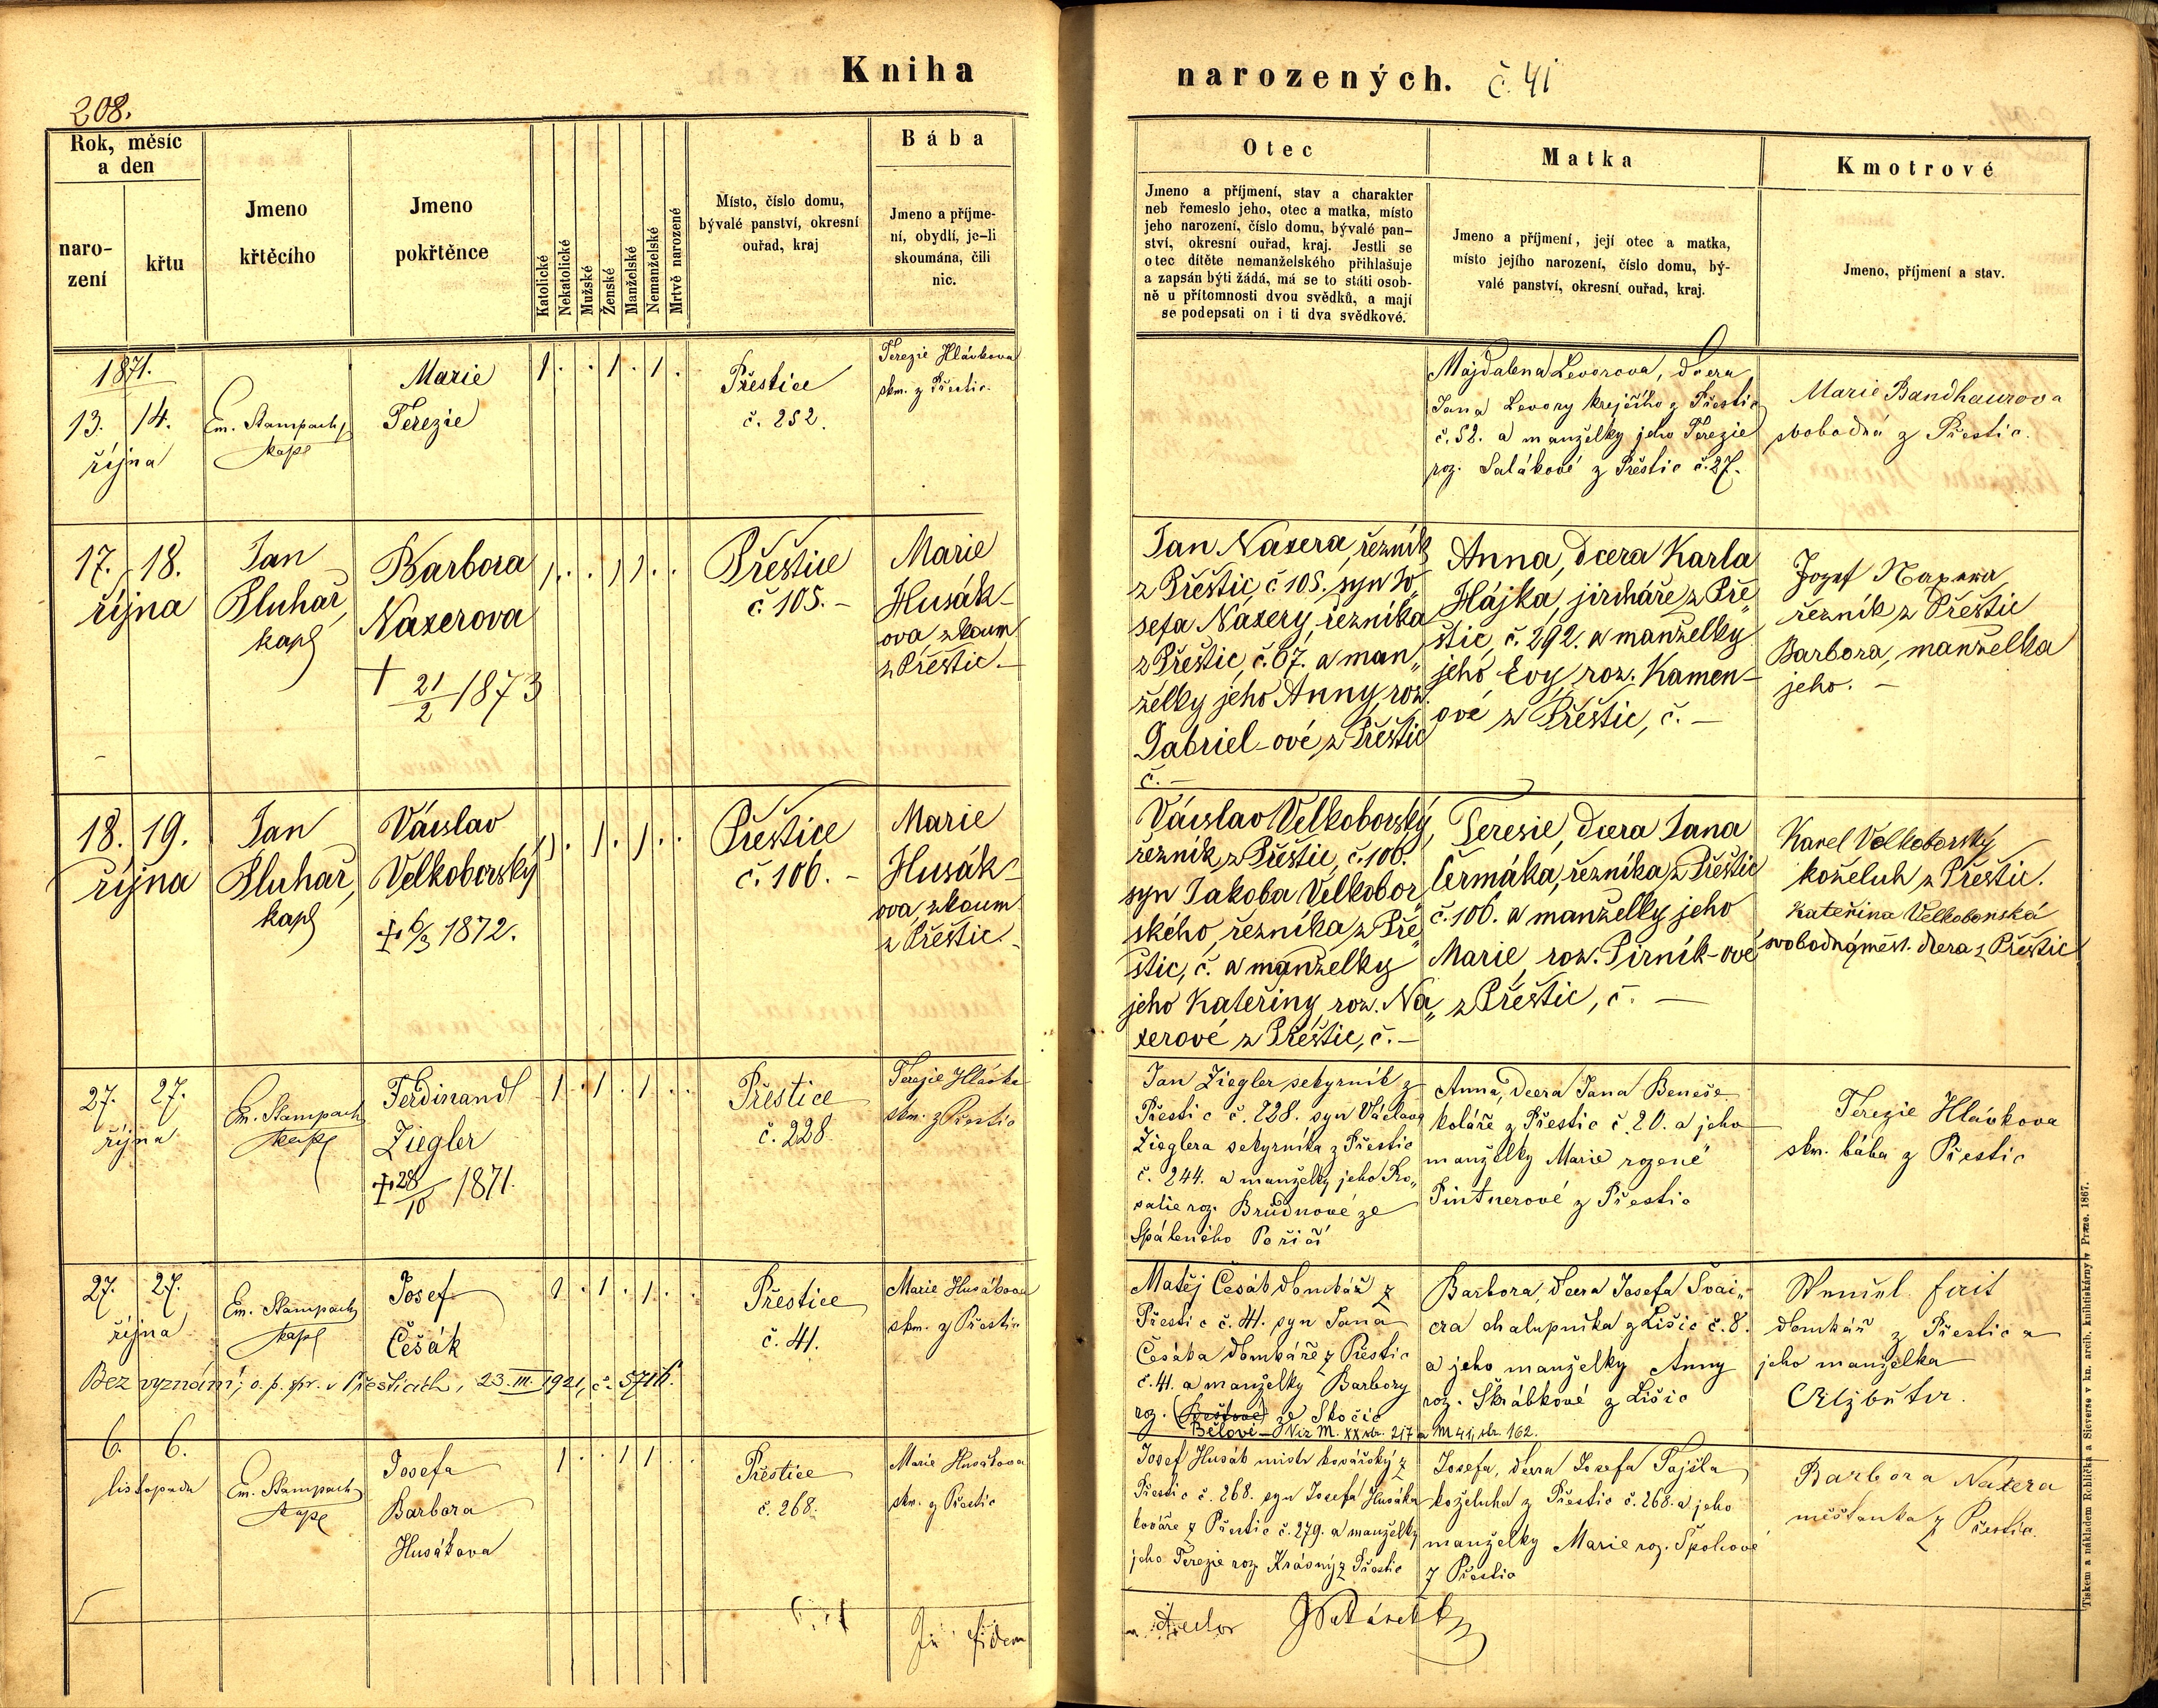 Kniha
narozených. č. 41
208.
Rok, měsíc
a den
naro-
zení
křtu
Jmeno
křtěcího
Jmeno
pokřtěnce
Katolické
Nekatolické
Mužské
Ženské
Manželské
Nemanželské
Mrtvě narozené
Místo, číslo domu,
bývalé panství, okresní
ouřad, kraj
Bába
Jmeno a příjme-
ní, obydlí, je-li
skoumána, čili
nic.
Otec
Jmeno a příjmení, stav a charakter
neb řemeslo jeho, otec a matka, místo
jeho narození, číslo domu, bývalé pan-
ství, okresní ouřad, kraj. Jestli se
otec dítěte nemanželského přihlašuje
a zapsán býti žádá, má se to státi osob-
ně u přítomnosti dvou svědků, a mají
se podepsati on i ti dva svědkové.
Matka
Jmeno a příjmení, její otec a matka,
místo jejího narození, číslo domu, bý-
valé panství, okresní ouřad, kraj.
Kmotrové
Jmeno, příjmení a stav.
1871.
13. 14.
října
Em. Stampach
kapl
Marie
Terezie
1 . . 1 . 1 .
Přestice
č. 252.
Terezie Hlávkova
skm. z Přestic.
Majdalena Levorova, dcera
Jana Levory krejčího z Přestic
č. 52. a manželky jeho Terezie
roz. Salákové z Přestic č. 27.
Marie Bandhaurova
svobodná z Přestic.
17. 18.
října
Jan
Pluhař,
kapl
Barbora
Naxerova
† 21/2 1873
1 . . 1 1 . .
Přeštice
č 105. –
Marie
Husák-
ova, zkoum
z Přeštic. –
Jan Naxera, řezník
z Přeštic, č 105. syn Jo„
sefa Naxery, řezníka
z Přeštic, č. 67. a man„
želky jeho Anny, roz.
Gabriel-ové z Přeštic
č. –
Anna, dcera Karla
Hájka, jircháře z Pře„
štic, č. 292. a manželky
jeho Evy, roz. Kamen-
ové z Přeštic, č. –
Jozef Naxera
řezník z Přeštic
Barbora, manželka
jeho. –
18. 19.
října
Jan
Pluhař,
kapl
Václav
Velkoborský
† 6/3 1872.
1 . 1 . 1 . .
Přeštice
č. 106. –
Marie
Husák-
ova, zkoum
z Přeštic. –
Václav Velkoborský,
řezník z Přeštic, č. 106.
syn Jakoba Velkobor„
ského, řezníka z Pře„
štic, č. a manželky
jeho Kateřiny, roz. Na„
xerové z Přeštic, č. –
Teresie, dcera Jana
Čermáka, řezníka z Přeštic
č. 106. a manželky jeho
Marie, roz. Pirník-ové
z Přeštic, č. –
Karel Velkoborský
koželuh z Přeštic.
Kateřina Velkoborská
svobodná měst. dcera z Přeštic
27. 27.
října
Em. Stampach
kapl
Ferdinand
Ziegler
† 28/10 1871.
1 . 1 . 1 . .
Přestice
č. 228.
Terezie Hlávka
skm. z Přestic
Jan Ziegler sekyrník z
Přestic č. 228. syn Václava
Zieglera sekyrníka z Přestic
č. 244. a manželky jeho Ro„
salie roz. Brudnové ze
Spáleného Poříčí
Anna, dcera Jana Beneše
koláře z Přestic č. 20. a jeho
manželky Marie rozené
Pintnerové z Přestic
Terezie Hlávkova
skm. bába z Přestic
27. 27.
října
Em. Stampach
kapl
Josef
Češák
1 . 1 . 1 . .
Přestice
č. 41.
Marie Husákova
skm. z Přestic
Bez vyznání; o. p. spr. v Přešticích, 23. III. 1921, č. 5716.
Matěj Česák domkář z
Přestic č. 41. syn Jana
Česáka domkáře z Přestic
č. 41. a manželky Barbory
roz. ze Skočic
Bělové – Viz M. XX str. 217 a M 41, str. 162.
Barbora, dcera Josefa Švai„
cra chalupníka z Lišic č. 8.
a jeho manželky Anny
roz. Škrábkové z Lišic
domkář z Přestic a
jeho manželka
Alžběta.
6. 6.
listopadu
Em. Stampach
kapl
Josefa
Barbora
Husákova
1 . . 1 1 . .
Přestice
č. 268.
Marie Husákova
skm. z Přestic
Josef Husák mistr kovářský z
Přestic č. 268. syn Josefa Husáka
kováře z Přestic č. 279. a manželky
jeho Terezie roz. Krásný z Přestic
Josefa, dcera Josefa Pajšla
koželuha z Přestic č. 268. a jeho
manželky Marie roz. Špohové
z Přestic
Barbora Naxera
měšťanka z Přestic.
In fidem
Tiskem a nákladem Rohlíčka a Sieverse v kn. arcib. knihtiskárny v Praze. 1867.